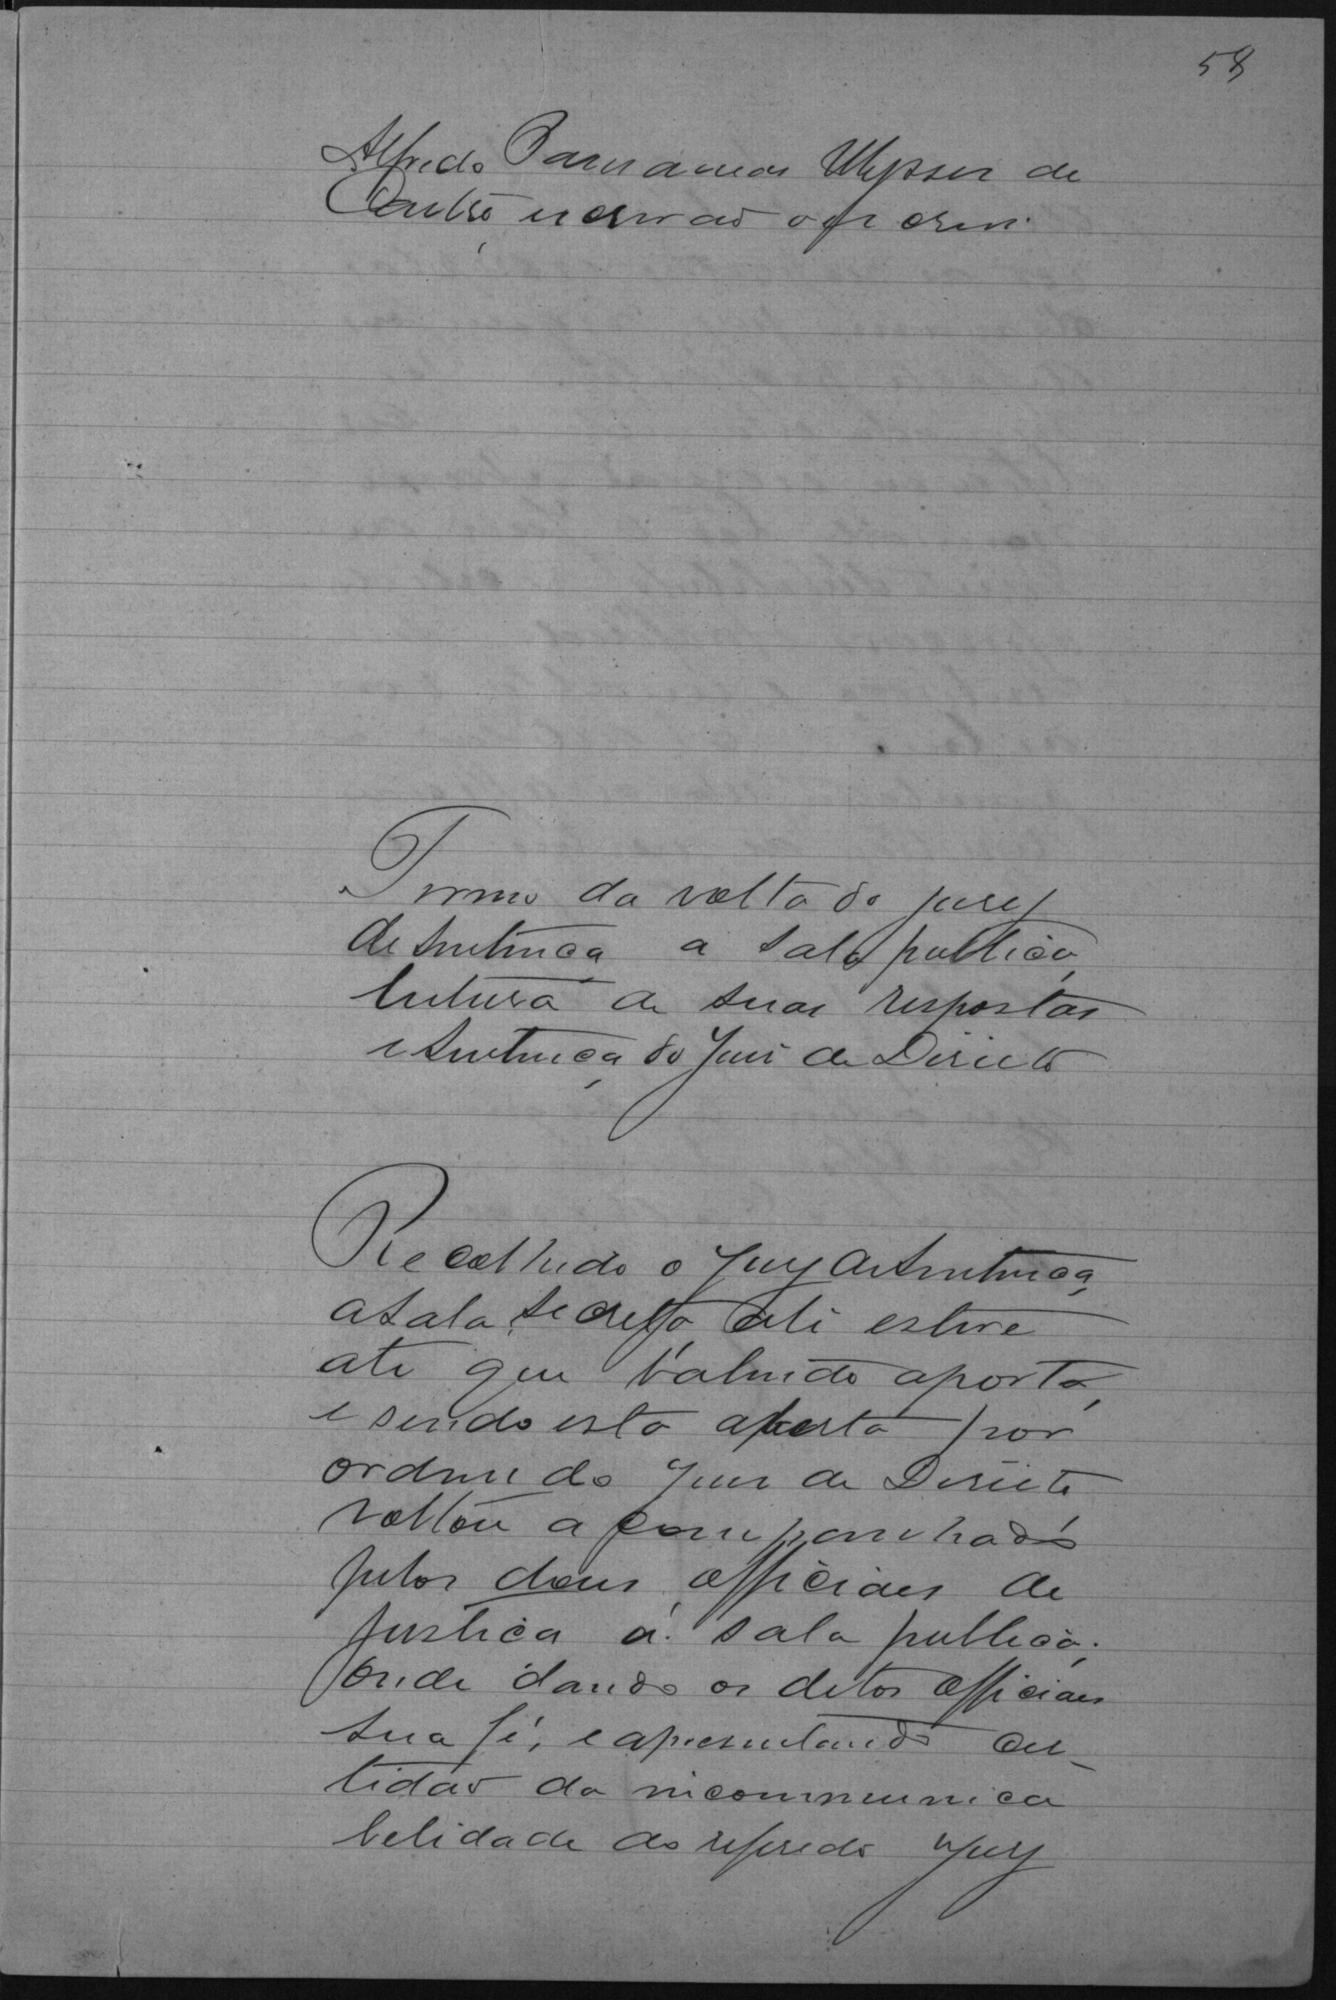 58
Alfredo Ulysses de
Castro escrivão o escrevi
Termo da volta do jury
de sentença a sala publica,
leitura de suas respostas
e sentença do Juis de Direito
Recolhido o Jury de sentença,
a sala secreta ali esteve
até que batendo a porta,
e sendo esta aberta por
ordem do Juis de Direito
voltou acompanhado
pelos dous officiaes de
Justica á sala publica;
onde dando os ditos officiaes
sua fé, e apresentando cer-
tidão da incommunica
belidade do referido Jury